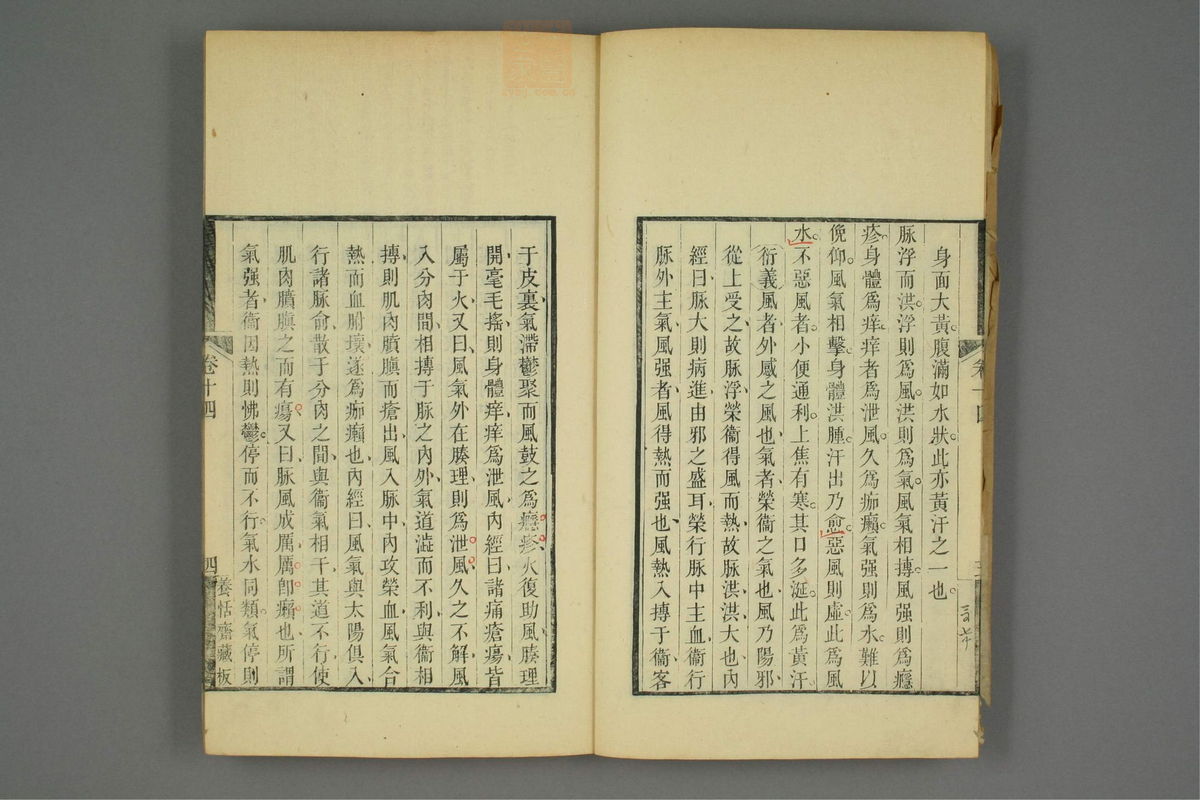 身面大黃腹滿如水狀此亦黃汗之一也
脉浮而洪浮則爲風洪則爲氣風氣相摶風强則爲癮
疹身體爲痒痒者爲泄風久爲痂癩氣强則爲水難以
俛仰風氣相擊身體洪腫汗出乃愈惡風則虛此爲風
水不惡風者小便通利上焦有寒其口多涎此爲黃汗
衍義風者外感之風也氣者榮衞之氣也風乃陽邪
從上受之故脉浮榮衞得風而熱故脉洪洪大也內
經曰脉大則病進由邪之盛耳榮行脉中主血衞行
脉外主氣風强者風得熱而强也風熱入摶于衞客
于皮裏氣滯鬱聚而風鼓之爲癮疹火復助風腠理
開毫毛搖則身體痒痒爲泄風內經曰諸痛瘡瘍皆
屬于火又曰風氣外在腠理則爲泄風久之不解風
入分肉間相摶于脉之內外氣道澁而不利與衞相
摶則肌肉䐜䐜而瘡出風入脉中內攻榮血風氣合
熱而血胕壞遂爲痂癩也內經曰風氣與太陽俱入
行諸脉俞散于分肉之間與衞氣相干其道不行使
肌肉䐜䐜之而有瘍又曰脉風成厲厲卽癩也所謂
氣强者衞因熱則怫鬱停而不行氣水同類氣停則
卷十四
四
養恬齋藏板